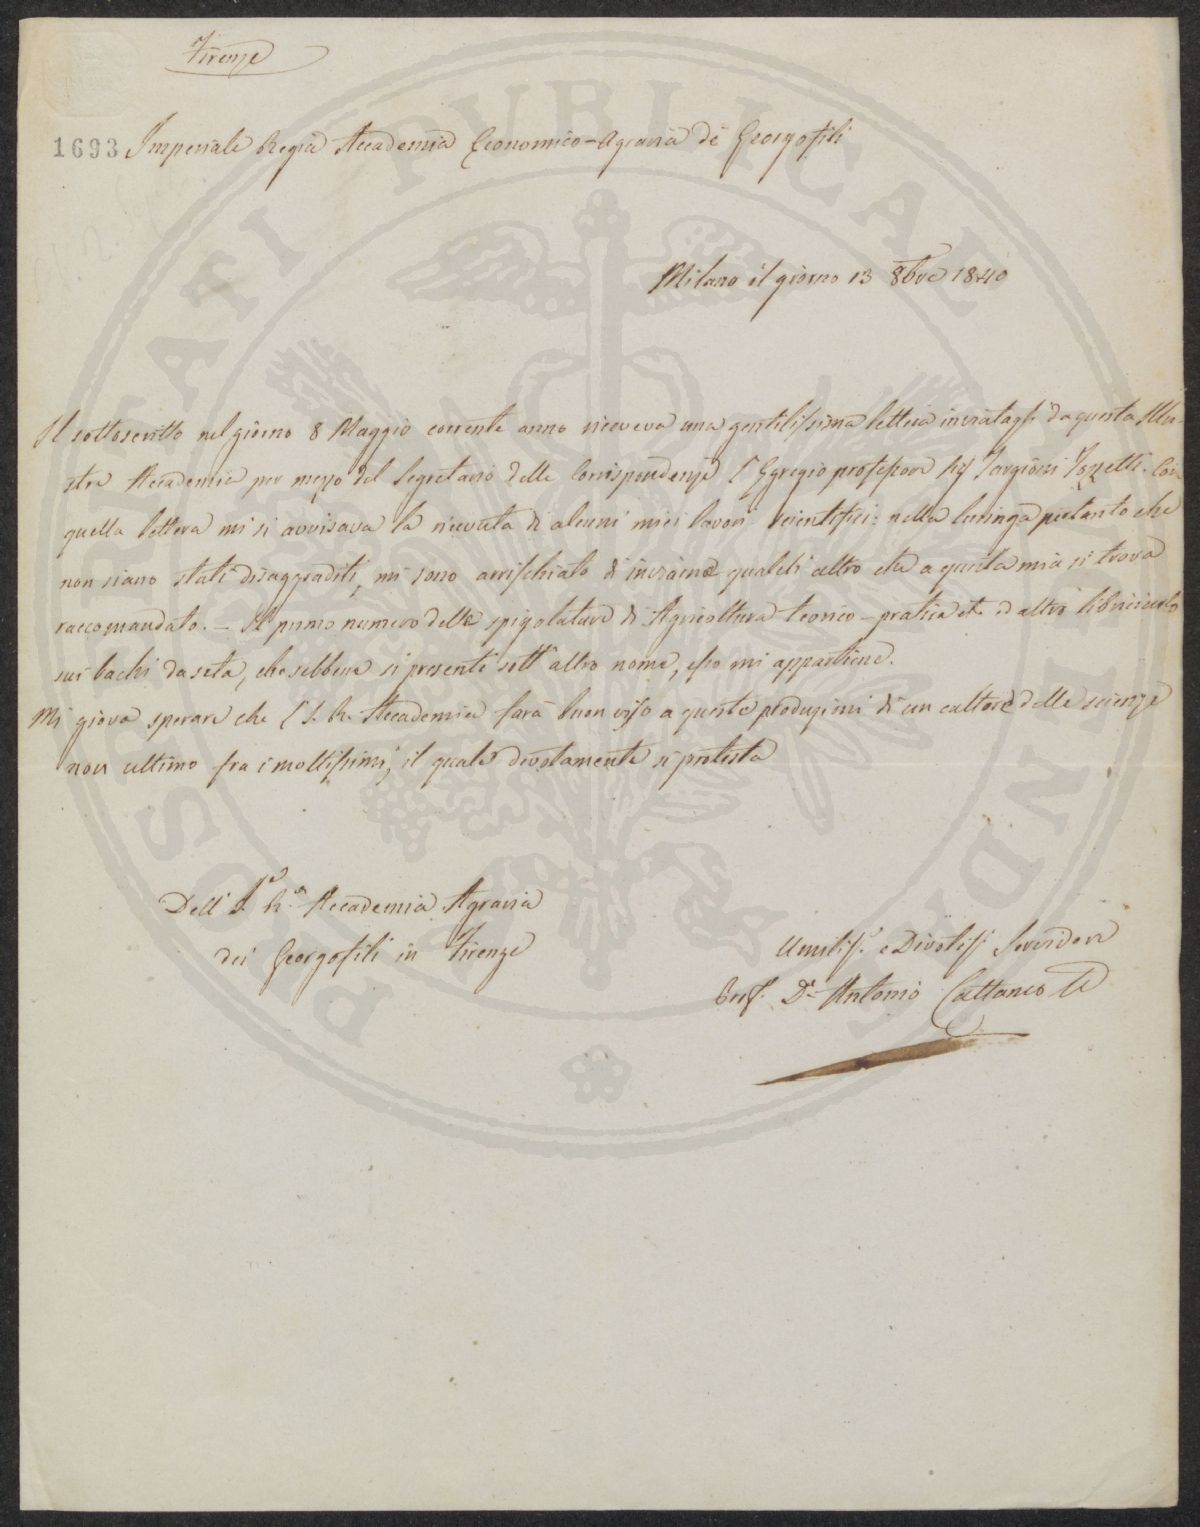 Firenze
1693
Imperiale Regia Accademia Economico-Agraria de Georgofili
Milano il giorno 13 8bre 1840
Il sottoscritto nel giorno 8 Maggio corrente anno riceveva una gentilissima lettera inviatagli da questa Illu-
stre Accademia per mezzo del Segretario delle Corrispondenze l'Egregio professore Targioni Tozzetti. Con
quella lettera mi si avvisava la ricevuta di alcuni miei lavori scientifici: nella lusinga pertanto che
non siano stati disaggraditi, mi sono arrischiato di inviarne qualch altro che a questa mia si trova
raccomandato. — Il primo numero delle spigolature di Agricoltura teorico-pratica ed altro libricciuolo
sui bachi da seta, che sebbene si presenti sott'altro nome, esso mi appartiene.
Mi giova sperare che l'I. R. Accademia farà buon viso a queste produzioni di un cultore delle scienze
non ultimo fra i moltissimi, il quale devotamente si protesta
Dell' I.e R.a Accademia Agraria
dei Georgofili in Firenze
Umiliss.o e Divotiss. Servidore
Prof. Dr Antonio Cattaneo
PROSPERITATI PUBLICAE AUGENDAE